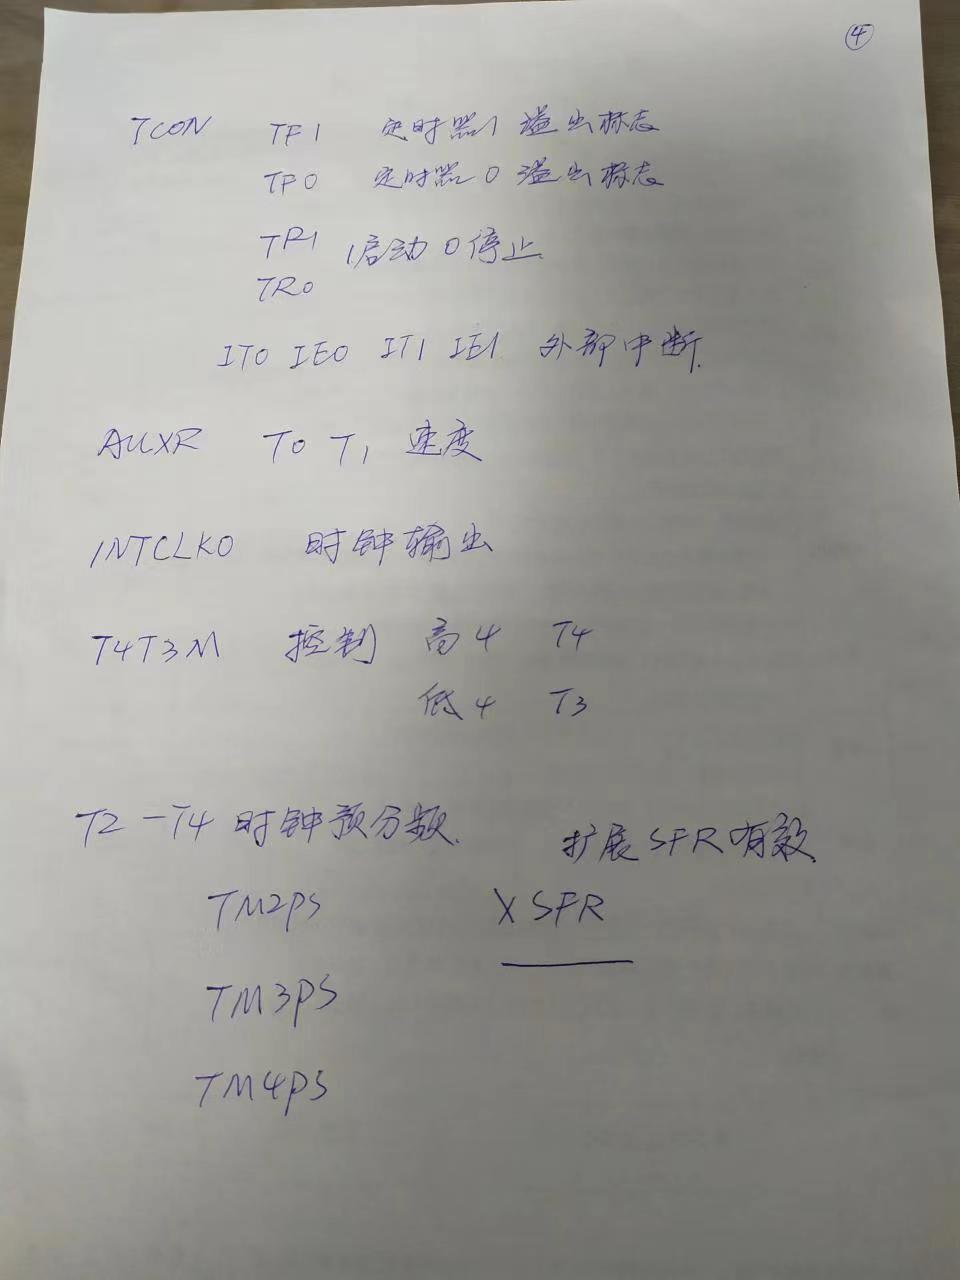 ④
TCON TF1 定时器1 溢出标志
TF0 定时器0 溢出标志
TR1 1启动 0停止
TR0
IT0 IE0 IT1 IE1 外部中断.
AUXR T0 T1 速度
INTCLKO 时钟输出
T4T3M 控制 高4 T4
低4 T3
T2-T4 时钟预分频.
扩展SFR有效.
TM2PS XSFR
TM3PS
TM4PS